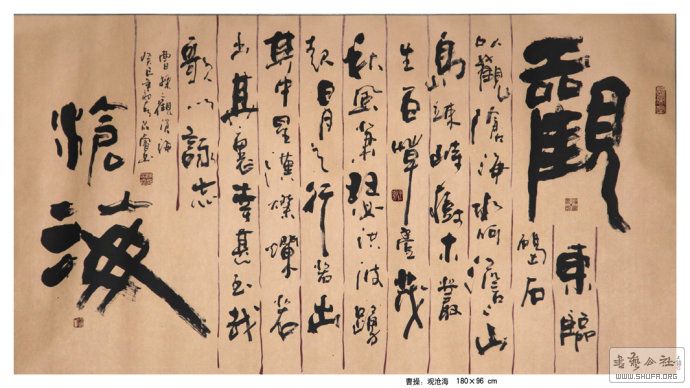 觀
東臨
碣石
以觀滄海水何澹〻山
島竦峙樹木叢
生百草豐茂
秋風蕭瑟洪波踴
起日月之行若出
其中星漢燦爛若
出其裏幸甚至哉
歌以詠志
曹操觀滄海
癸巳年初
滄海
曹操：观沧海 180×96 cm
書藝公社
WWW.SHUFA.ORG